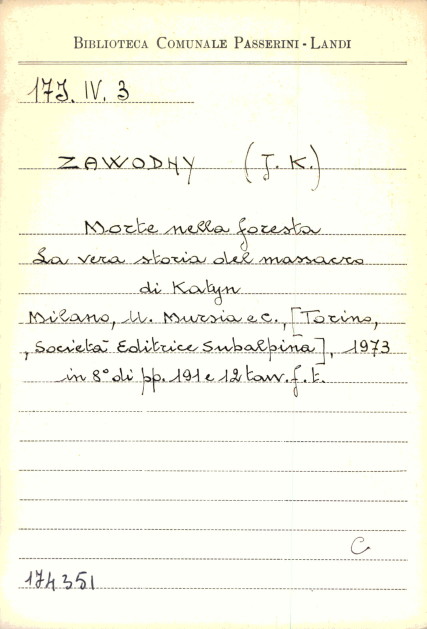 BIBLIOTECA COMUNALE PASSERINI - LANDI
17J. IV. 3
ZAWODNY (J. K.)
Morte nella foresta
La vera storia del massacro
di Katyn
Milano, U. Mursia e C., [Torino,
, Società Editrice Subalpina], 1973
in 8° di pp. 191 e 12 tav. f. t.
C
174351